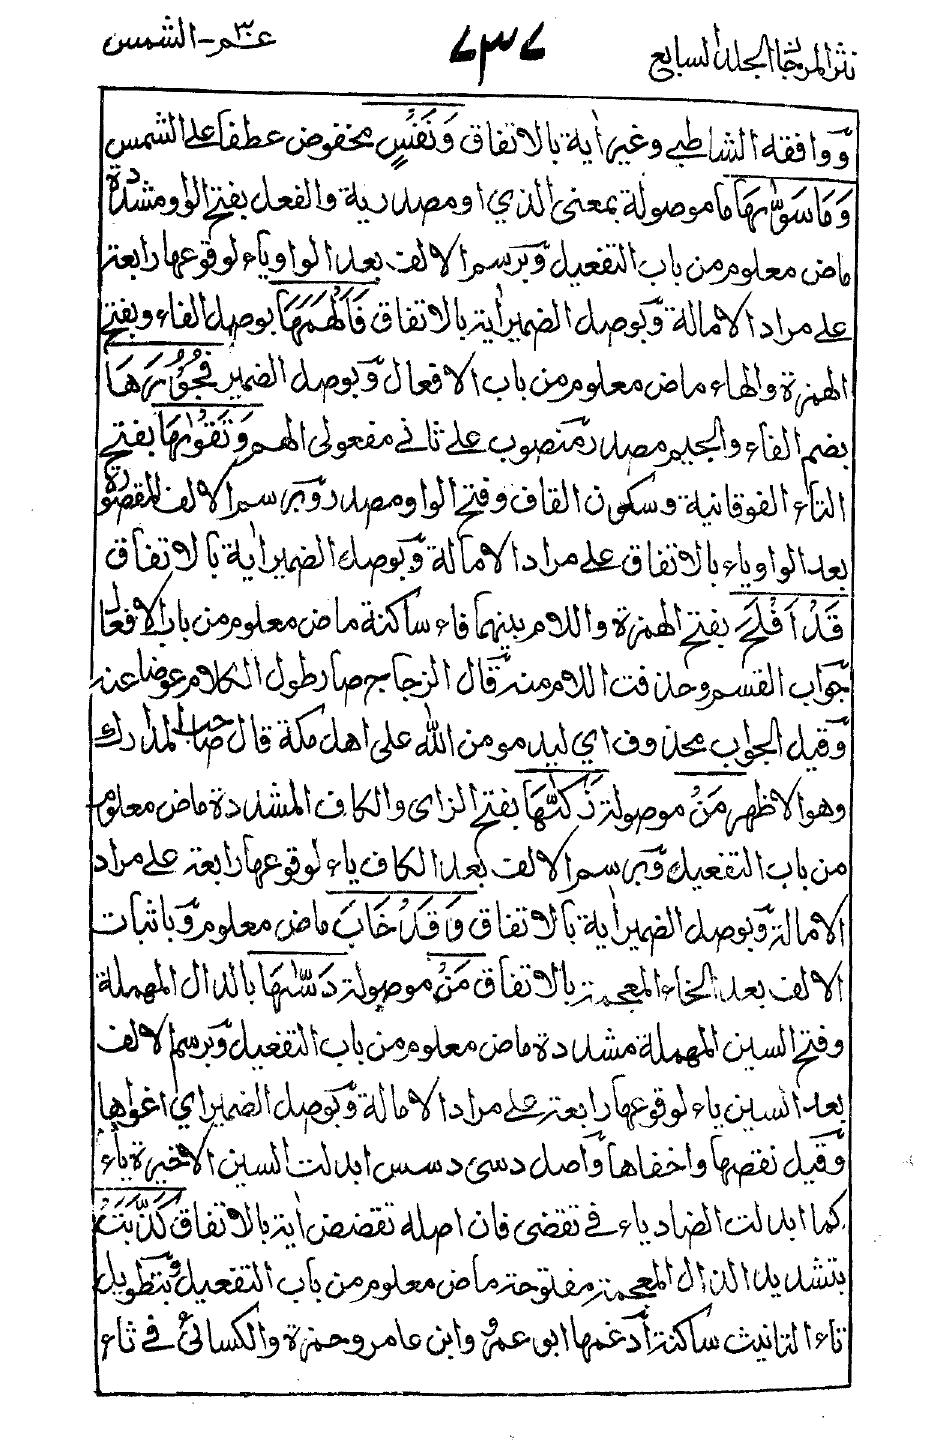 نثر المرجان الجلد السابع
٧٣٧
عم ٣٠ - الشمس
ووافقه الشاطبي وغيراية بالاتفاق وَنَفْسٍ مخفوض عطفا على الشمس
وَمَا سَوّٰىهَا ما موصولة بمعنى الذي او مصدرية والفعل بفتح الواو مشددة
ماض معلوم من باب التفعيل وبرسم الالف بعد الواو ياء لوقوعها رابعة
على مراد الامالة وبوصل الضمير اية بالاتفاق فَاَلْهَمَهَا بوصل الفاء وبفتح
الهمزة والهاء ماض معلوم من باب الافعال وبوصل الضمير فُجُوْرَهَا
بضم الفاء والجيم مصدر منصوب على ثاني مفعولى الهم وَتَقْوٰىهَا بفتح
التاء الفوقانية وسكون القاف وفتح الواو مصدر وبرسم الالف المقصورة
بعد الواو ياء بالاتفاق على مراد الامالة وبوصل الضمير اية بالاتفاق
قَدْ اَفْلَحَ بفتح الهمزة واللام بينهما فاء ساكنة ماض معلوم من باب الافعال
جواب القسم وحذفت اللام منه قال الزجاج صار طول الكلام عوضا عنه
وقيل الجواب محذوف اي ليدمدمن الله على اهل مكة قال صاحب المدارك
وهو الاظهر مَنْ موصولة زَكّٰىهَا بفتح الزاى والكاف المشددة ماض معلوم
من باب التفعيل وبرسم الالف بعد الكاف ياء لوقوعها رابعة على مراد
الامالة وبوصل الضمير اية بالاتفاق وَقَدْ خَابَ ماض معلوم وباثبات
الالف بعد الخاء المعجمة بالاتفاق مَنْ موصولة دَسّٰىهَا بالدال المهملة
وفتح السين المهملة مشددة ماض معلوم من باب التفعيل وبرسم الالف
بعد السين ياء لوقوعها رابعة على مراد الامالة وبوصل الضمير اي اغواها
وقيل نقصها واخفاها واصل دسى دسس ابدلت السين الاخيرة ياء
كما ابدلت الضاد ياء في تقضى فان اصله تقضض اية بالاتفاق كَذَّبَتْ
بتشديد الذال المعجمة مفتوحة ماض معلوم من باب التفعيل وبتطويل
تاء التانيث ساكنة ادغمها ابو عمرو وابن عامر وحمزة والكسائي في ثاء